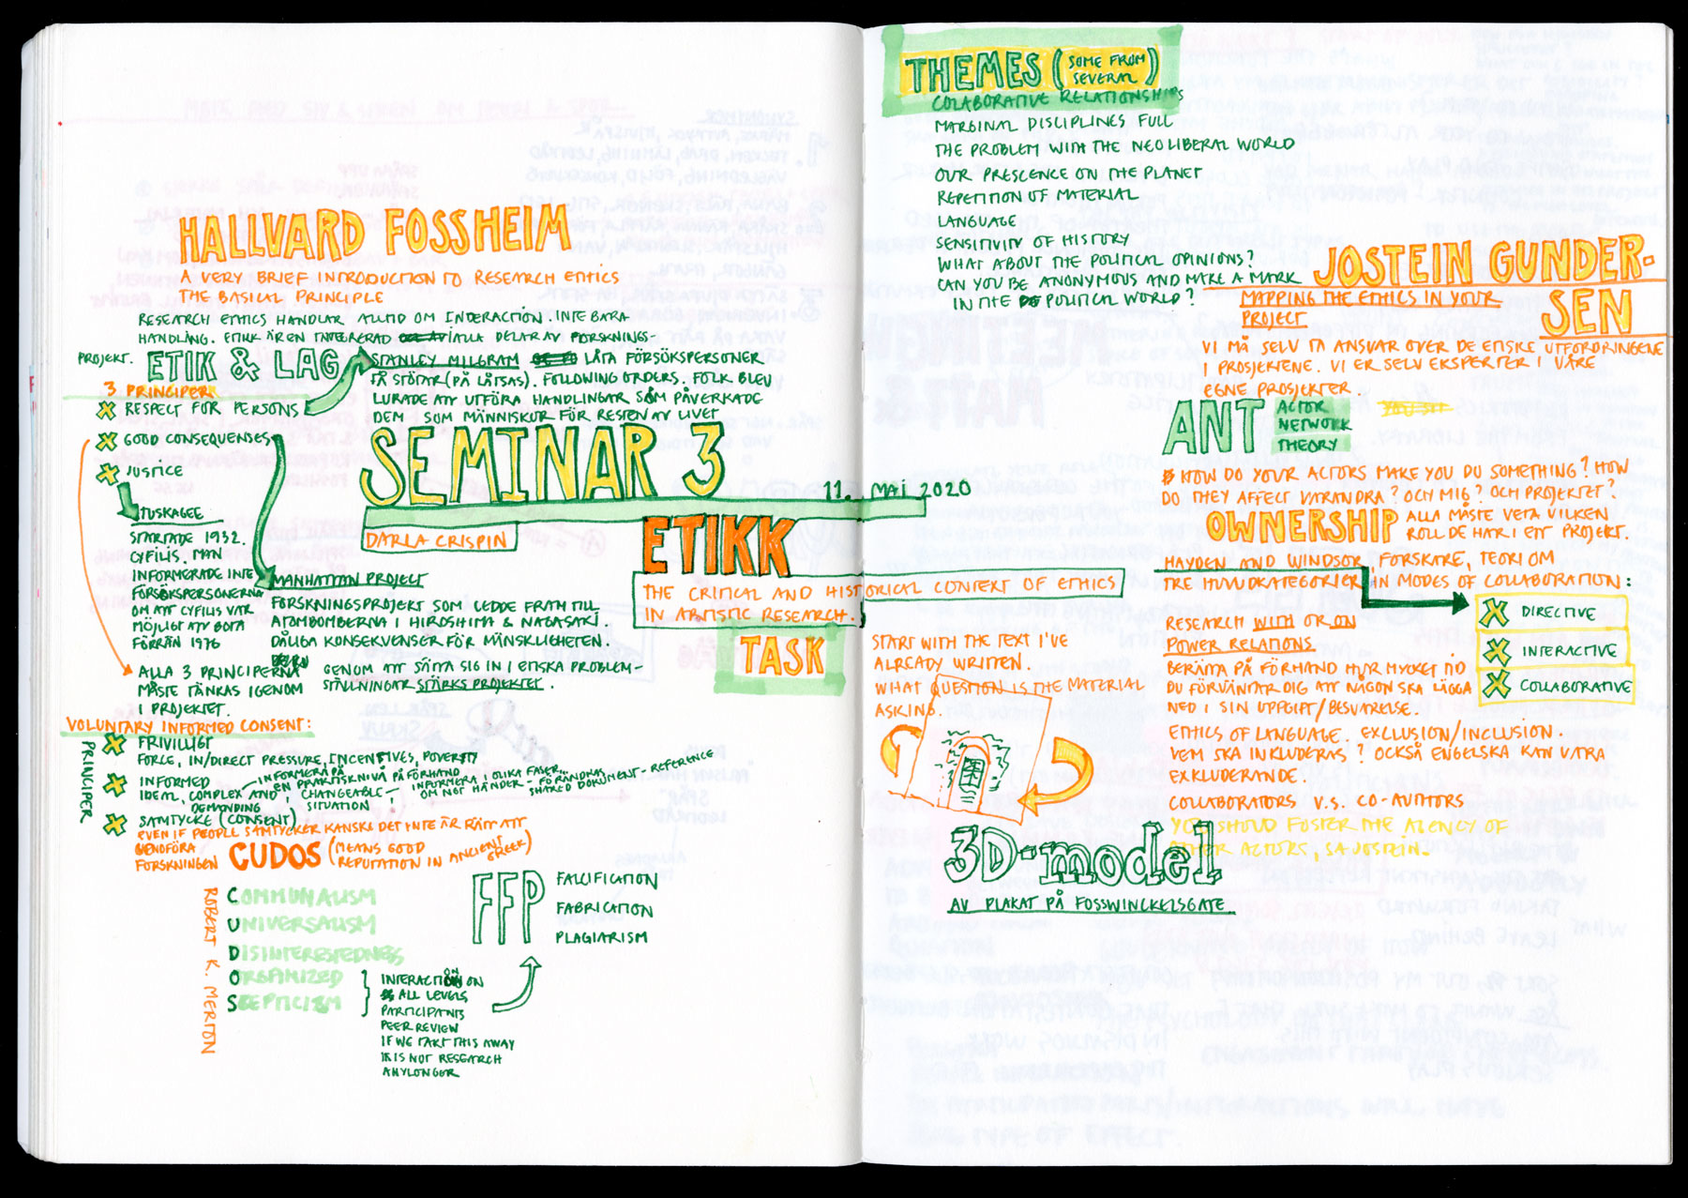 HALLVARD FOSSHEIM
A VERY BRIEF INTRODUCTION TO RESEARCH ETHICS
THE BASICAL PRINCIPLE
RESEARCH ETHICS HANDLAR ALLTID OM INTERACTION. INTE BARA
HANDLING. ETIKK ÄR EN INTEGRERAD I ALLA DELAR AV FORSKNINGS-
PROJEKT.
ETIK & LAG
3 PRINCIPER
RESPECT FOR PERSONS
GOOD CONSEQUENSES
JUSTICE
STANLEY MILGRAM LÅTA FÖRSÖKSPERSONER
FÅ STÖTAR (PÅ LÅTSAS). FOLLOWING ORDERS. FOLK BLEV
LURADE ATT UTFÖRA HANDLINGAR SOM PÅVERKADE
DEM SOM MÄNNISKOR FÖR RESTEN AV LIVET
TUSKAGEE
STARTADE 1932.
CYFILIS. MAN
INFORMERADE INTE
FÖRSÖKSPERSONERNA
OM ATT CYFILIS VAR
MÖJLIGT ATT BOTA
FÖRRÄN 1976
MANHATTAN PROJECT
FORSKNINGSPROJEKT SOM LEDDE FRAM TILL
ATOMBOMBERNA I HIROSHIMA & NAGASAKI.
DÅLIGA KONSEKVENSER FÖR MÄNSKLIGHETEN.
GENOM ATT SÄTTA SIG IN I ETISKA PROBLEM-
STÄLLNINGAR STÄRKS PROJEKTET.
ALLA 3 PRINCIPERNA
MÅSTE TÄNKAS IGENOM
I PROJEKTET.
VOLUNTARY INFORMED CONSENT:
PRINCIPER
FRIVILLIGT
FORCE, IN/DIRECT PRESSURE, INCENTIVES, POVERTY
INFORMED
IDEAL, COMPLEX AND DEMANDING
INFORMERA PÅ EN PRAKTISK NIVÅ PÅ FÖRHAND
CHANGEABLE SITUATION
INFORMERA I OLIKA FASER... OM NOT HÄNDER - FÖRÄNDRAS
SHARED DOKUMENT - REFERENCE
SAMTYCKE (CONSENT)
EVEN IF PEOPLE SAMTYCKER KANSKE DET INTE ÄR RÄTT ATT
GENOFÖRA
FORSKNINGEN
CUDOS (MEANS GOOD
REPUTATION IN ANCIENT GREEK)
ROBERT K. MERTON
COMMUNALISM
UNIVERSALISM
DISINTERESTEDNESS
ORGANIZED
SKEPTICISM
INTERACTION ON
ALL LEVELS
PARTICIPANTS
PEER REVIEW
IF WE TAKE THIS AWAY
IT IS NOT RESEARCH
ANYLONGER
FFP
FALCIFICATION
FABRICATION
PLAGIARISM
SEMINAR 3
11. MAI 2020
DARLA CRISPIN
ETIKK
THE CRITICAL AND HISTORICAL CONTEXT OF ETHICS
IN ARTISTIC RESEARCH.
TASK
START WITH THE TEXT I'VE
ALREADY WRITTEN.
WHAT QUESTION IS THE MATERIAL
ASKING.
3D-model
AV PLAKAT PÅ FOSSWINCKELSGATE.
THEMES (SOME FROM
SEVERAL)
COLABORATIVE RELATIONSHIPS
MARGINAL DISCIPLINES FULL
THE PROBLEM WITH THE NEOLIBERAL WORLD
OUR PRESCENCE ON THE PLANET
REPETITION OF MATERIAL
LANGUAGE
SENSITIVITY OF HISTORY
WHAT ABOUT THE POLITICAL OPINIONS?
CAN YOU BE ANONYMOUS AND MAKE A MARK
IN THE POLITICAL WORLD?
JOSTEIN GUNDER-
SEN
MAPPING THE ETHICS IN YOUR
PROJECT
VI MÅ SELV TA ANSVAR OVER DE ETISKE UTFORDRINGENE
I PROSJEKTENE. VI ER SELV EKSPERTER I VÅRE
EGNE PROSJEKTER
ANT ACTOR
NETWORK
THEORY
HOW DO YOUR ACTORS MAKE YOU DO SOMETHING? HOW
DO THEY AFFECT VARANDRA? OCH MIG? OCH PROJEKTET?
OWNERSHIP ALLA MÅSTE VETA VILKEN
ROLL DE HAR I ETT PROJEKT.
HAYDEN AND WINDSOR, FORSKARE, TEORI OM
TRE HUVUDKATEGORIER IN MODES OF COLLABORATION:
DIRECTIVE
INTERACTIVE
COLLABORATIVE
RESEARCH WITH OR ON
POWER RELATIONS.
BERÄTTA PÅ FÖRHAND HUR MYCKET TID
DU FÖRVÄNTAR DIG ATT NÅGON SKA LÄGGA
NED I SIN UPPGIFT/BESVARELSE.
ETHICS OF LANGUAGE. EXCLUSION/INCLUSION.
VEM SKA INKLUDERAS? OCKSÅ ENGELSKA KAN VARA
EXKLUDERANDE.
COLLABORATORS V.S. CO-AUTHORS
YOU SHOULD FOSTER THE AGENCY OF
OTHER ACTORS, SA JOSTEIN.